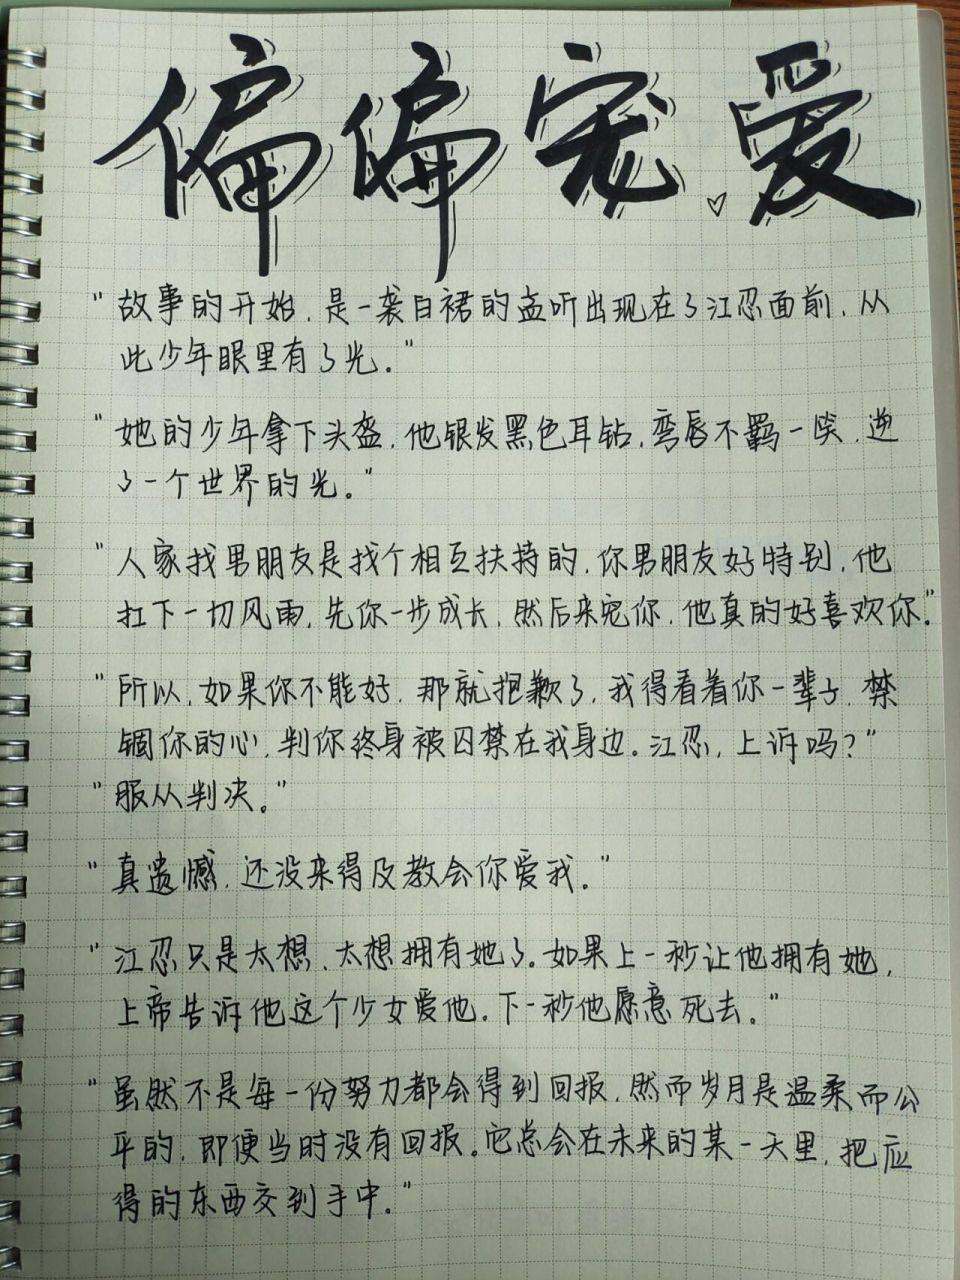 偏偏宠爱
"故事的开始,是一袭白裙的孟听出现在了江忍面前,从
此少年眼里有了光。"
"她的少年拿下头盔,他银发黑色耳钻,弯唇不羁一笑,逆
了一个世界的光。"
"人家找男朋友是找个相互扶持的,你男朋友好特别,他
扛下一切风雨,先你一步成长,然后来宠你,他真的好喜欢你。"
"所以,如果你不能好,那就抱歉了,我得看着你一辈子,禁
锢你的心,判你终身被囚禁在我身边。江忍,上诉吗?"
"服从判决。"
"真遗憾,还没来得及教会你爱我。"
"江忍只是太想、太想拥有她了。如果上一秒让他拥有她,
上帝告诉他这个少女爱他。下一秒他愿意死去。"
"虽然不是每一份努力都会得到回报,然而岁月是温柔而公
平的,即便当时没有回报。它总会在未来的某一天里,把应
得的东西交到手中。"